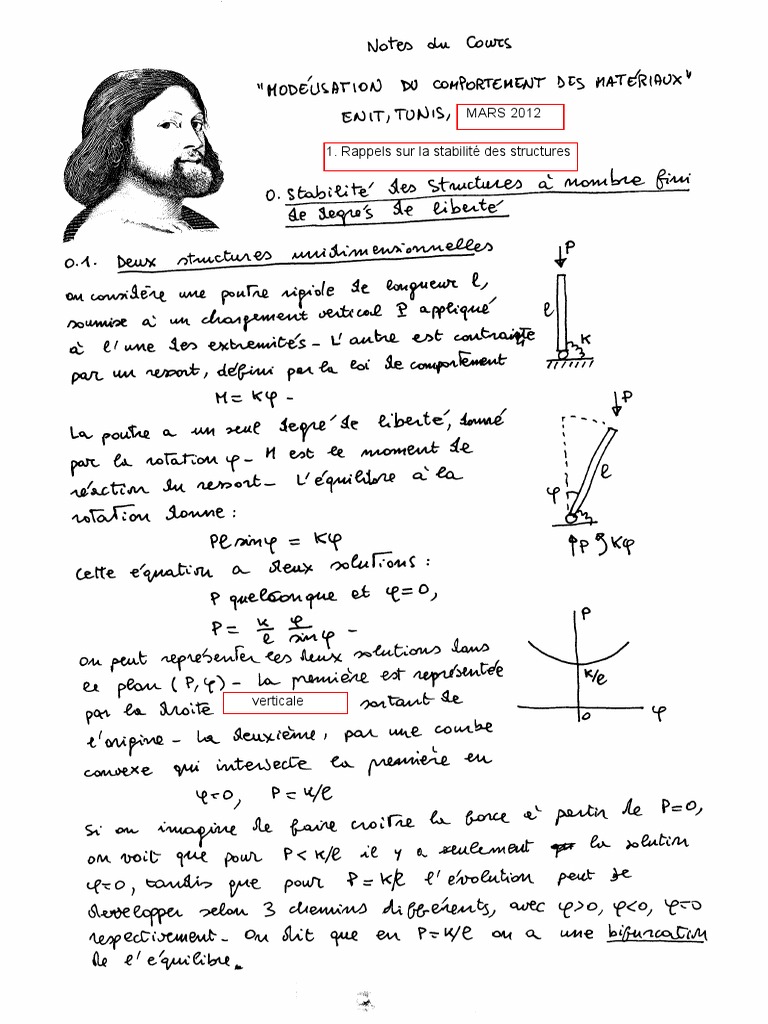 Notes du Cours
"MODÉLISATION DU COMPORTEMENT DES MATÉRIAUX"
ENIT, TUNIS, MARS 2012
1. Rappels sur la stabilité des structures
0. Stabilité des Structures à nombre fini
de degrés de liberté
0.1. Deux structures unidimensionnelles
on considère une poutre rigide de longueur l,
soumise à un chargement vertical P appliqué
à l'une des extremités - L'autre est contrainte
par un ressort, défini par la loi de comportement
M = Kφ -
La poutre a un seul degré de liberté, donné
par la rotation φ - M est le moment de
réaction du ressort - L'équilibre à la
rotation donne :
Pl sinφ = Kφ
Cette équation a deux solutions :
P quelconque et φ=0,
P = K/l φ/sinφ -
On peut représenter les deux solutions dans
le plan (P, φ) - La première est représentée
par la droite verticale sortant de
l'origine - La deuxième, par une courbe
convexe qui intersecte la première en
φ=0, P = K/l
Si on imagine de faire croître la force à partir de P=0,
on voit que pour P < K/l il y a seulement la solution
φ=0, tandis que pour P = K/l l'évolution peut se
developper selon 3 chemins différents, avec φ>0, φ<0, φ=0
respectivement - On dit que en P=K/l on a une bifurcation
de l'équilibre.
P
l
K
P
l
φ
P Kφ
P
K/l
0
φ